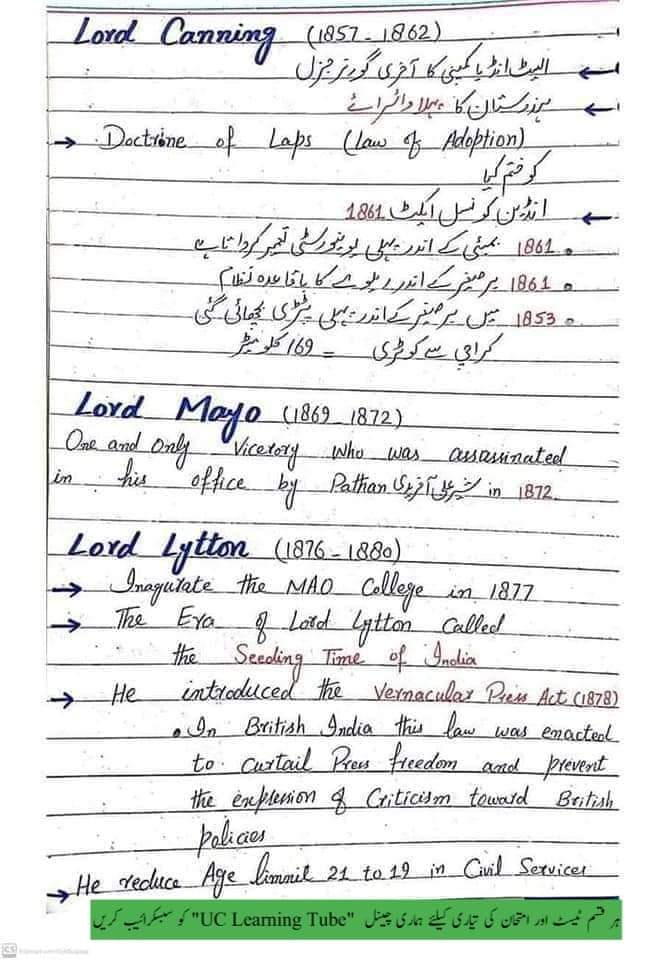 Lord Canning (1857-1862)
← ایسٹ انڈیا کمپنی کا آخری گورنر جنرل
← ہندوستان کا پہلا وائسرائے
→ Doctrine of Laps (Law of Adoption)
کو ختم کیا
← انڈین کونسل ایکٹ 1861
• 1861 بمبئی کے اندر پہلی یونیورسٹی تعمیر کرواتا ہے
• 1861 برصغیر کے اندر ریلوے کا باقاعدہ نظام
• 1853 میں برصغیر کے اندر پہلی پٹڑی بچھائی گئی
کراچی سے کوٹری = 169 کلومیٹر
Lord Mayo (1869-1872)
One and Only Vicerory who was assassinated
in his office by Pathan شیر علی آفریدی in 1872.
Lord Lytton (1876-1880)
→ Inagurate the MAO College in 1877
→ The Era of Lord Lytton Called
the Seeding Time of India
→ He introduced the Vernacular Press Act (1878)
• In British India this law was enacted
to curtail Press freedom and prevent
the expression of Criticism toward British
policies
→ He reduce Age limmit 21 to 19 in Civil Services
ہر قسم ٹیسٹ اور امتحان کی تیاری کیلئے ہماری چینل "UC Learning Tube" کو سبسکرائیب کریں
CS